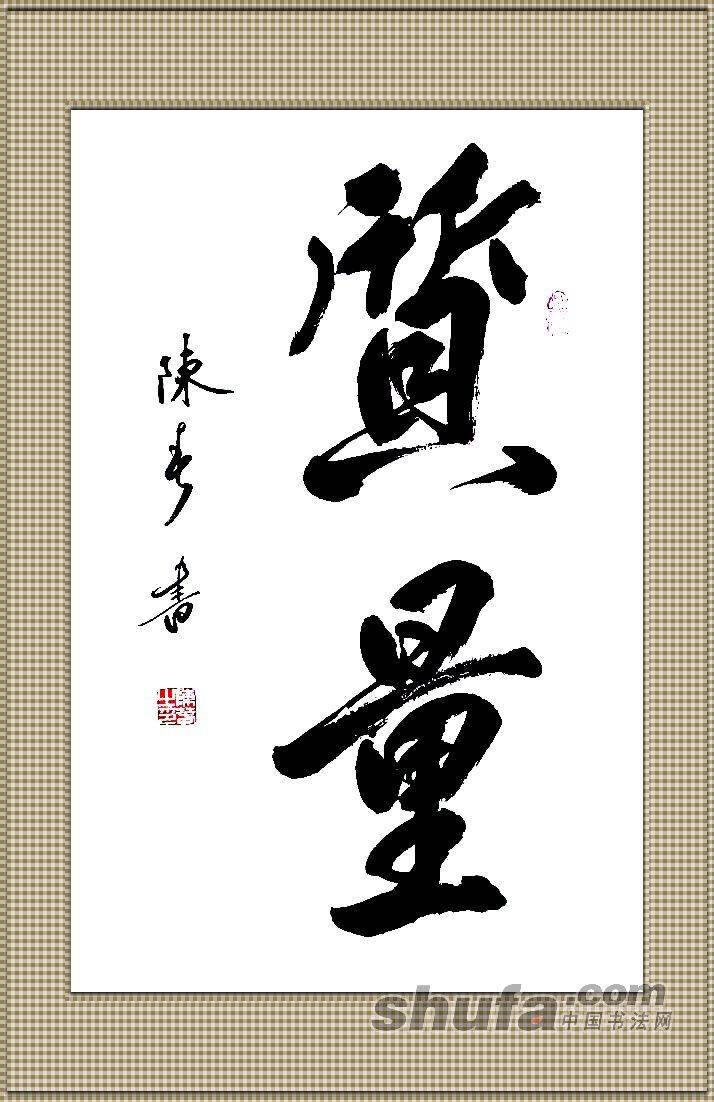 質量
陳春書
shufa.com
中国书法网